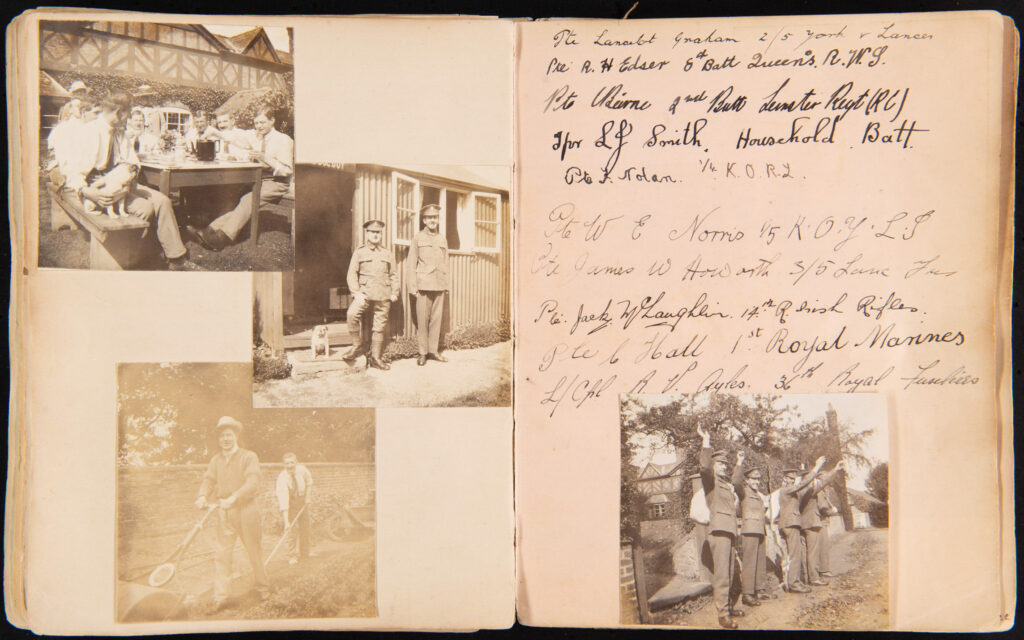 Pte Lancelot Graham 2/5 York & Lancs
Pte R. H Edser 6th Batt Queen's. R. W. S.
Pte O'Beirne 2nd Batt Leinster Regt (RC)
Tpr L J Smith, Household Batt.
Pte F. Nolan. 1/4 K. O. R. L.
Pte W E Norris 1/5 K. O. Y. L. I
Pte James W Howorth 3/5 Lanc Fus
Pte. Jack McLaughlin. 14th R. Irish Rifles.
Pte C Hall 1st Royal Marines
L/Cpl A. Ayles. 36th Royal Fusiliers